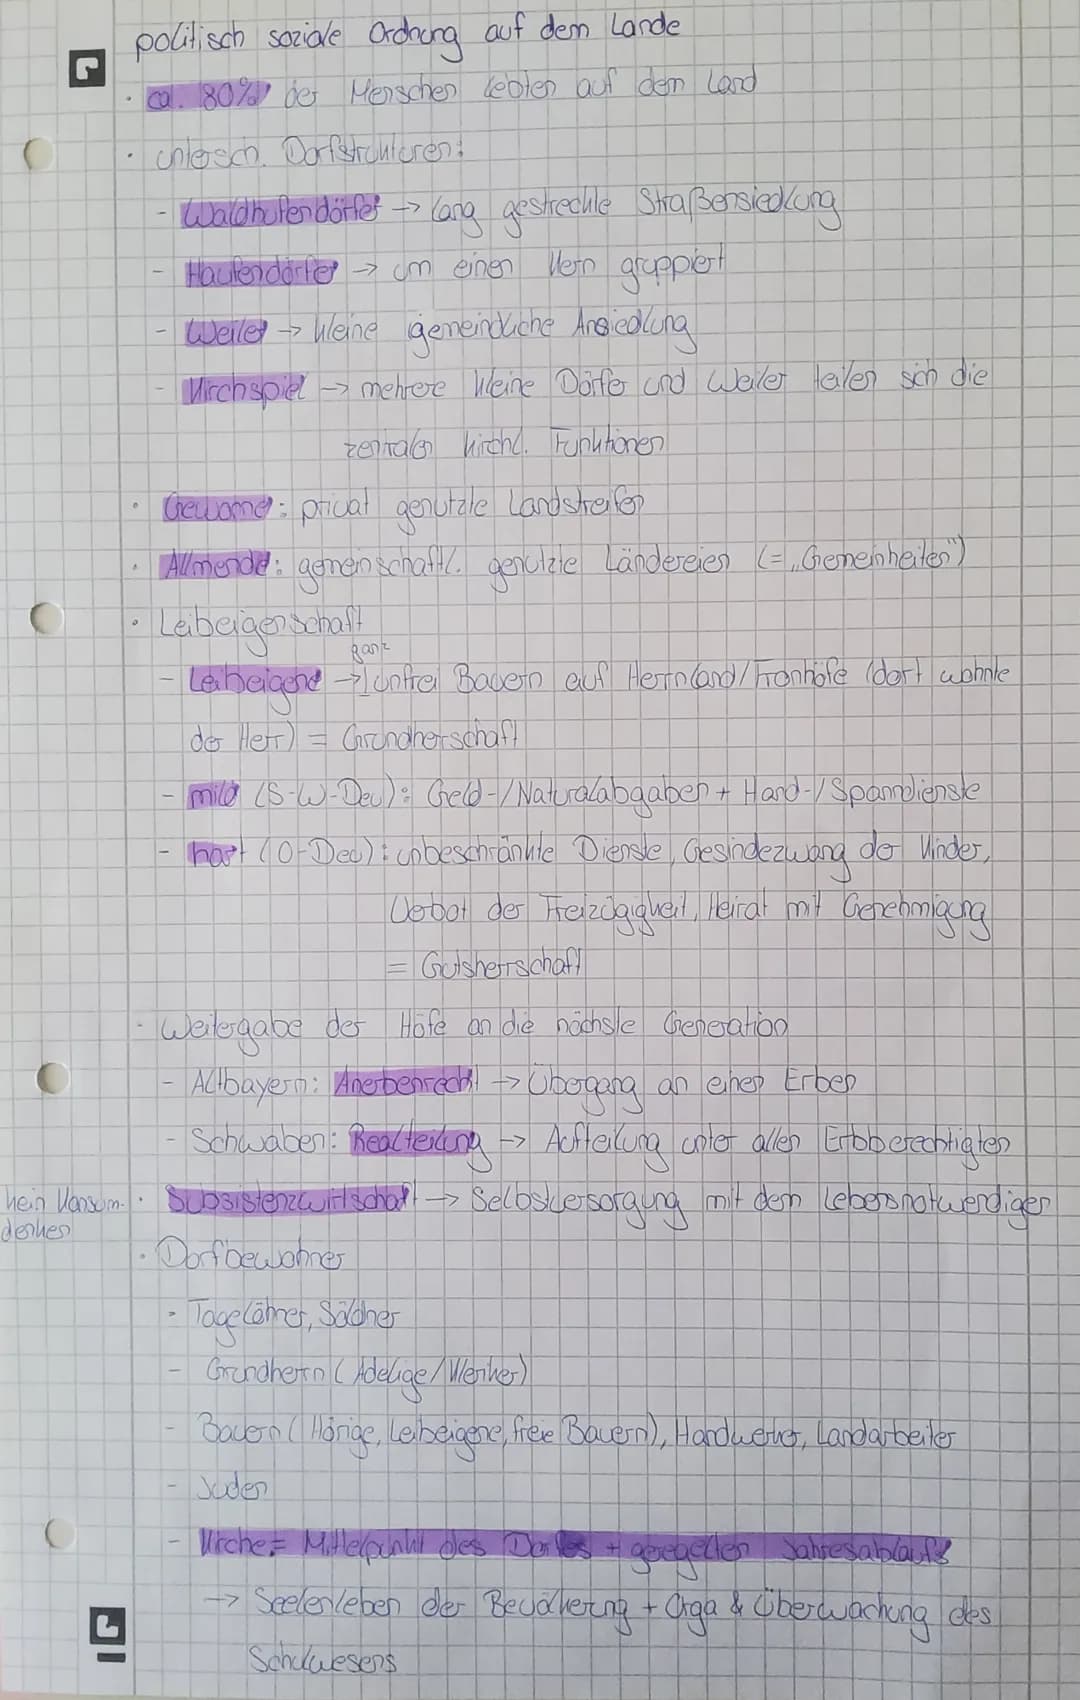 politisch soziale Ordnung auf dem Lande
· ca. 80% der Menschen lebten auf dem Land
· untersch. Dorfstrukturen:
- Waldhufendörfer → lang gestreckte Straßensiedlung
- Haufendörfer → um einen Kern gruppiert
- Weiler → kleine gemeindliche Ansiedlung
- Kirchspiel → mehrere kleine Dörfer und Weiler teilen sich die
zentralen kirchl. Funktionen
· Gewanne: privat genutzte Landstreifen
· Allmende: gemeinschaftl. genutzte Ländereien (= „Gemeinheiten")
· Leibeigenschaft
ganz
- Leibeigene → unfrei Bauern auf Herrnland/Fronhöfe (dort wohnte
der Herr) = Grundherrschaft
- mild (S-W-Deu): Geld-/Naturalabgaben + Hand-/Spanndienste
- hart (O-Deu): unbeschränkte Dienste, Gesindezwang der Kinder,
Verbot der Freizügigkeit, Heirat mit Genehmigung
= Gutsherrschaft
· Weitergabe der Höfe an die nächste Generation
- Altbayern: Anerbenrecht → Übergang an einen Erben
- Schwaben: Realteilung → Aufteilung unter allen Erbberechtigten
kein Konsum- · Subsistenzwirtschaft → Selbstversorgung mit dem Lebensnotwendigen
denken
· Dorfbewohner
- Tagelöhner, Söldner
- Grundherrn (Adelige/Kleriker)
- Bauern (Hörige, Leibeigene, freie Bauern), Handwerker, Landarbeiter
- Juden
- Kirche = Mittelpunkt des Dorfes + geregelten Jahresablaufs
→ Seelenleben der Bevölkerung + Orga & Überwachung des
Schulwesens